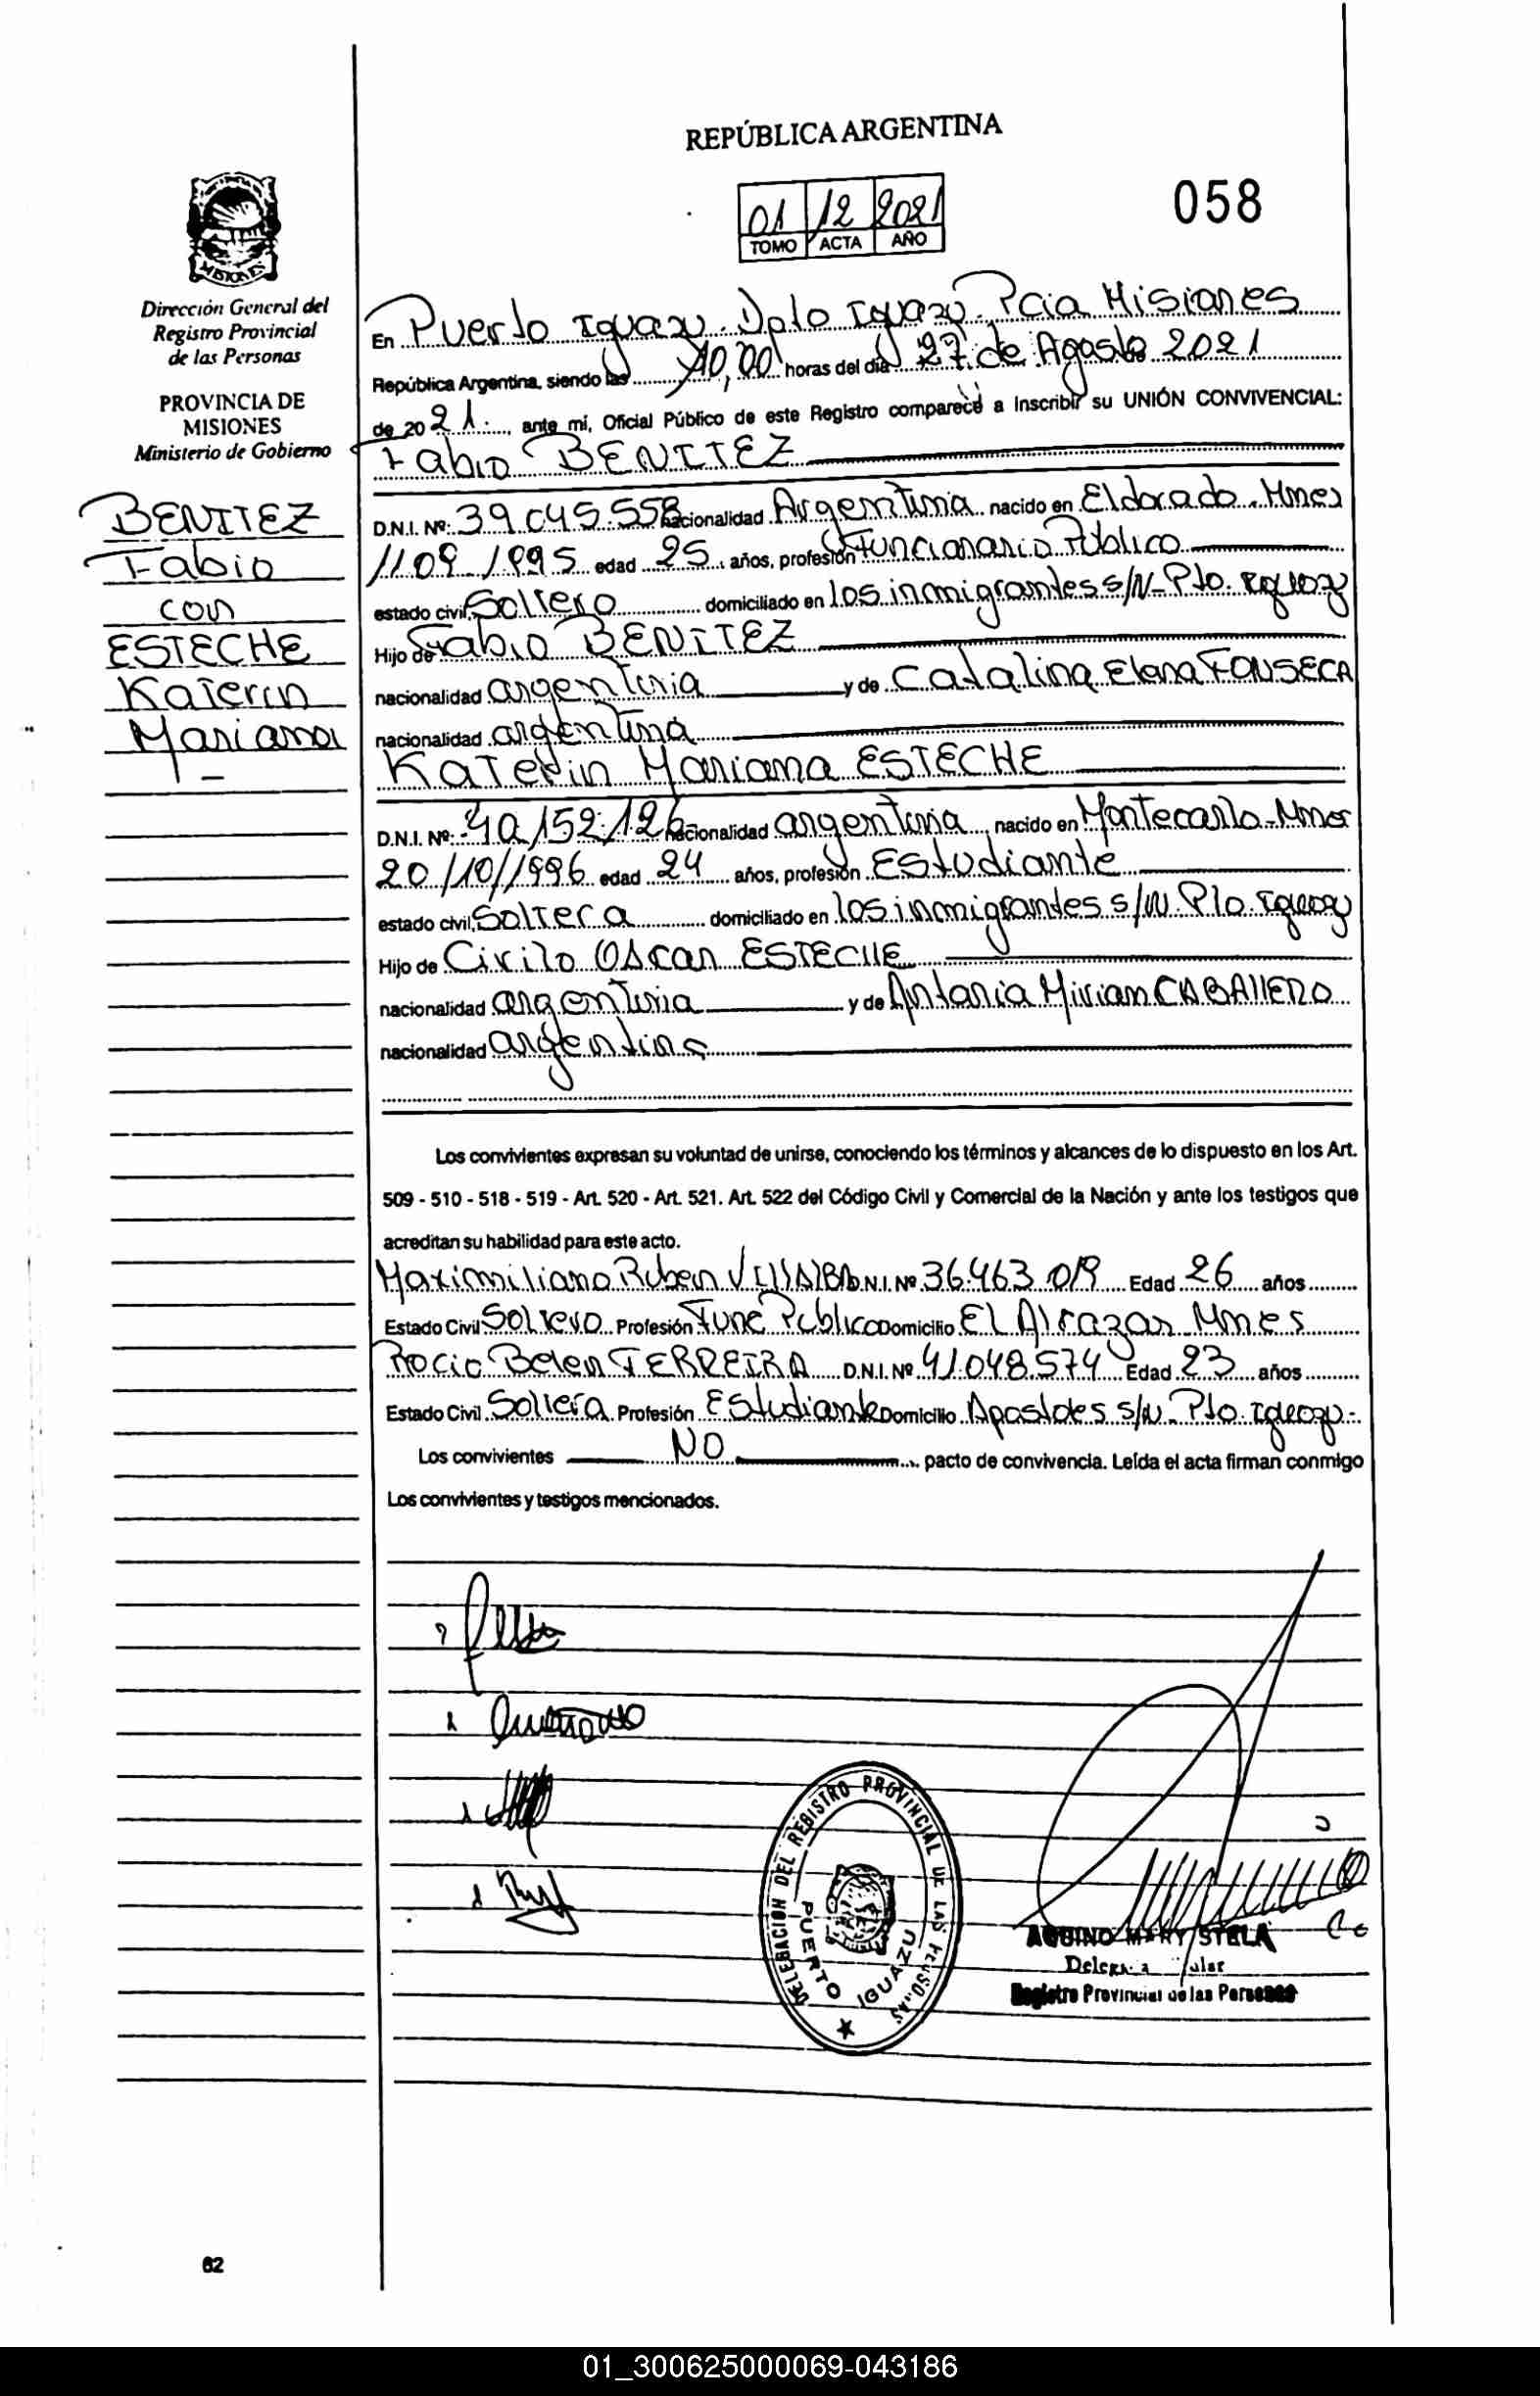 REPÚBLICA ARGENTINA
01 12 2021
TOMO ACTA AÑO
058
MISIONES
Dirección General del
Registro Provincial
de las Personas
PROVINCIA DE
MISIONES
Ministerio de Gobierno
BENITEZ
Fabio
con
ESTECHE
Katerin
Mariana
En Puerto Iguazu. Dpto Iguazu. Pcia Misiones
República Argentina, siendo las 10,00 horas del día 27 de Agosto 2021
de 2021 ante mí, Oficial Público de este Registro comparece a Inscribir su UNIÓN CONVIVENCIAL:
Fabio BENITEZ
D.N.I. Nº: 39.045.558 nacionalidad Argentina nacido en Eldorado. Mnes
11 09 1995 edad 25 años, profesión Funcionario Publico
estado civil, Soltero domiciliado en los inmigrantes s/N- Pto. Iguazu
Hijo de Fabio BENITEZ
nacionalidad argentina y de Catalina Elena FONSECA
nacionalidad argentina
Katerin Mariana ESTECHE
D.N.I. Nº: 40/152.126 nacionalidad argentina nacido en Montecarlo-Mnes
20/10/1996 edad 24 años, profesión Estudiante
estado civil, Soltera domiciliado en los inmigrantes s/N. Pto. Iguazu
Hijo de Cirilo Oscar ESTECHE
nacionalidad argentina y de Antonia Miriam CABALLERO
nacionalidad argentina
Los convivientes expresan su voluntad de unirse, conociendo los términos y alcances de lo dispuesto en los Art.
509 - 510 - 518 - 519 - Art. 520 - Art. 521. Art. 522 del Código Civil y Comercial de la Nación y ante los testigos que
acreditan su habilidad para este acto.
Maximiliano Ruben VILLALBA D.N.I. Nº 36.463.019 Edad 26 años
Estado Civil Soltero Profesión Func Publico Domicilio El Alcazar Mnes
Rocio Belen FERREIRA D.N.I. Nº 41.048.574 Edad 23 años
Estado Civil Soltera Profesión Estudiante Domicilio Apostoles s/N. Pto. Iguazu-
Los convivientes NO pacto de convivencia. Leída el acta firman conmigo
Los convivientes y testigos mencionados.
DELEGACION DEL REGISTRO PROVINCIAL DE LAS PERSONAS
PUERTO IGUAZU
AQUINO MARY STELA
Registro Provincial de las Personas
62
01_300625000069-043186